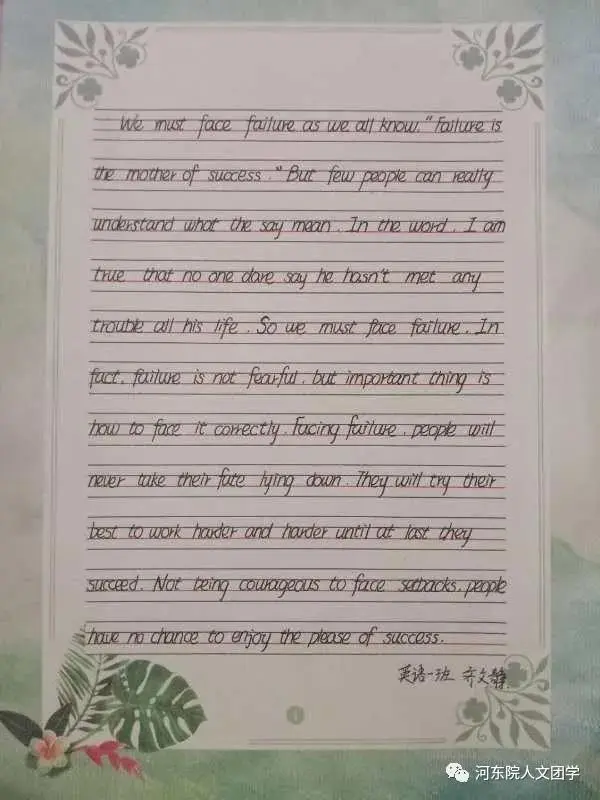 We must face failure as we all know. "Failure is
the mother of success." But few people can really
understand what the say mean. In the word, I am
true that no one dare say he hasn't met any
trouble all his life. So we must face failure. In
fact, failure is not fearful, but important thing is
how to face it correctly. Facing failure, people will
never take their fate lying down. They will try their
best to work harder and harder until at last they
succeed. Not being courageous to face setbacks, people
have no chance to enjoy the please of success.
英语一班 齐文静
1
河东院人文团学